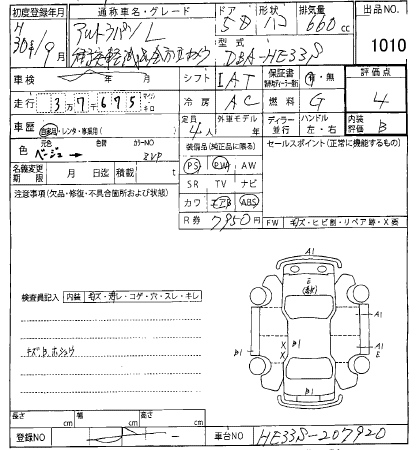 初度登録年月 通称車名・グレード ドア 形状 排気量 出品NO
H 30年/9月 アルトラパン L 5D ハコ 660cc 1010
型式 DBA-HE33S
車検 年 月 シフト IAT 保証書 有・無 評価点
走行 37675 マイル キロ 冷房 AC 燃料 G 4
車歴 自家用・レンタ・事業用( ) 定員 4人 外車モデル 年 ディーラー・並行 ハンドル 左・右 内装評価 B
色 元色 ベージュ→ 色替 カラーNO 装備品(純正品に限る) セールスポイント(正常に機能するもの)
名義変更期限 月 日迄 積載 t PS PW AW
注意事項(欠品・修復・不具合箇所および状態) SR TV ナビ
カワ エアB ABS
R券 7950円 FW キズ・ヒビ割・リペア跡・X要
A1
検査員記入 内装 キズ・汚レ・コゲ・穴・スレ・キレ
E
A1
B1
B1
X
X
A1
E
B1
長さ cm 幅 cm 高さ cm
登録NO 車台NO HE33S-207920